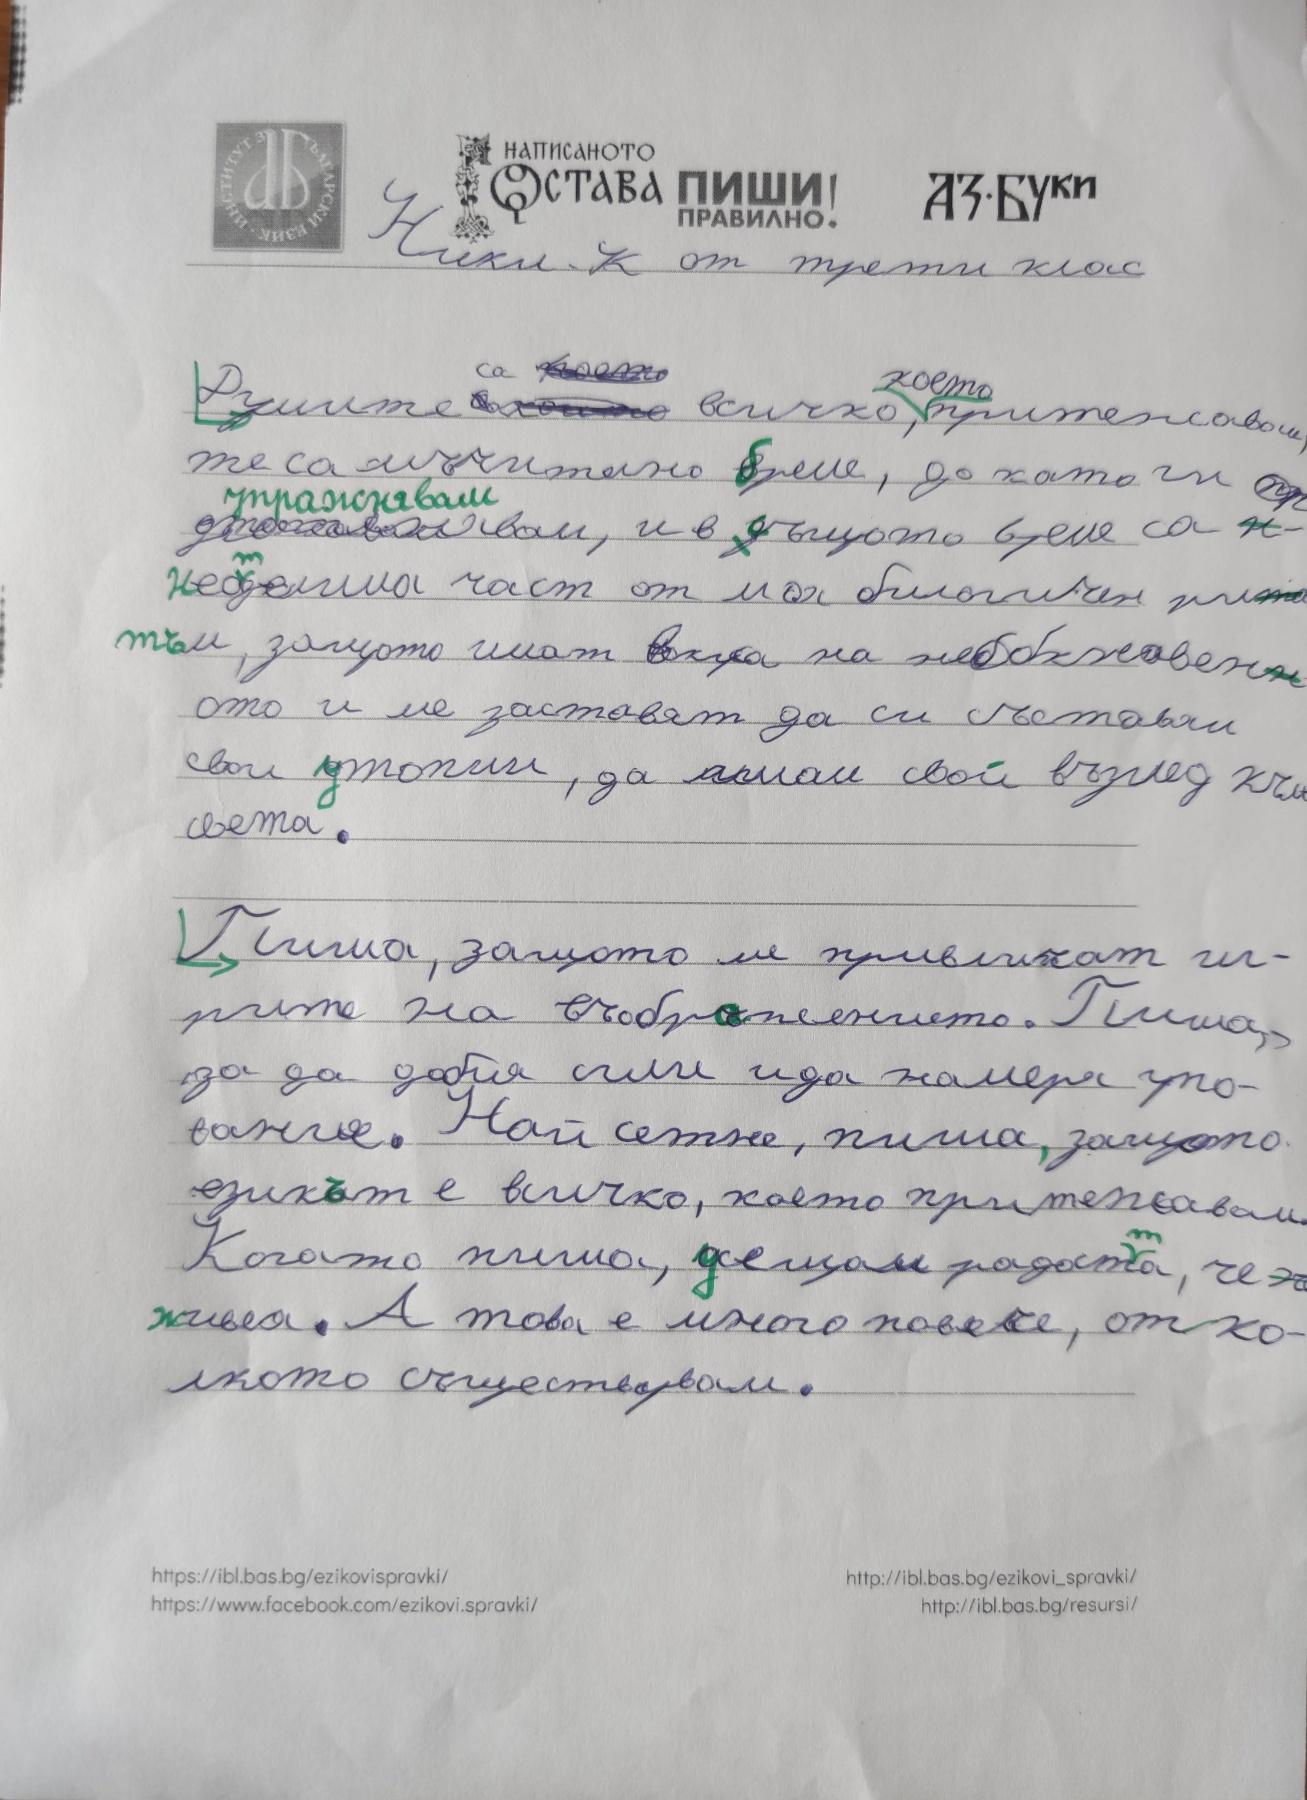 ИНСТИТУТ ЗА БЪЛГАРСКИ ЕЗИК
НАПИСАНОТО
ОСТАВА
ПИШИ
ПРАВИЛНО!
АЗ·БУКИ
Ники. К от трети клас
са
което
Думите всичко, притежавам,
те са мъчително бреме, докато ги
упражнявам
вам, и в същото време са
т
неделима част от моя биологичен ри
тъм, защото имат вкуса на необикновен
ото и ме заставят да си съставям
свои утопии, да имам свой възглед към
света.
Пиша, защото ме привличат иг-
рите на въображението. Пиша,
за да добия сили и да намеря упо-
вание. Най сетне, пиша, защото
езикът е всичко, което притежавам.
т
Когато пиша, усещам радостта, че
живея. А това е много повече, от ко-
лкото съществувам.
https://ibl.bas.bg/ezikovispravki/
https://www.facebook.com/ezikovi.spravki/
http://ibl.bas.bg/ezikovi_spravki/
http://ibl.bas.bg/resursi/